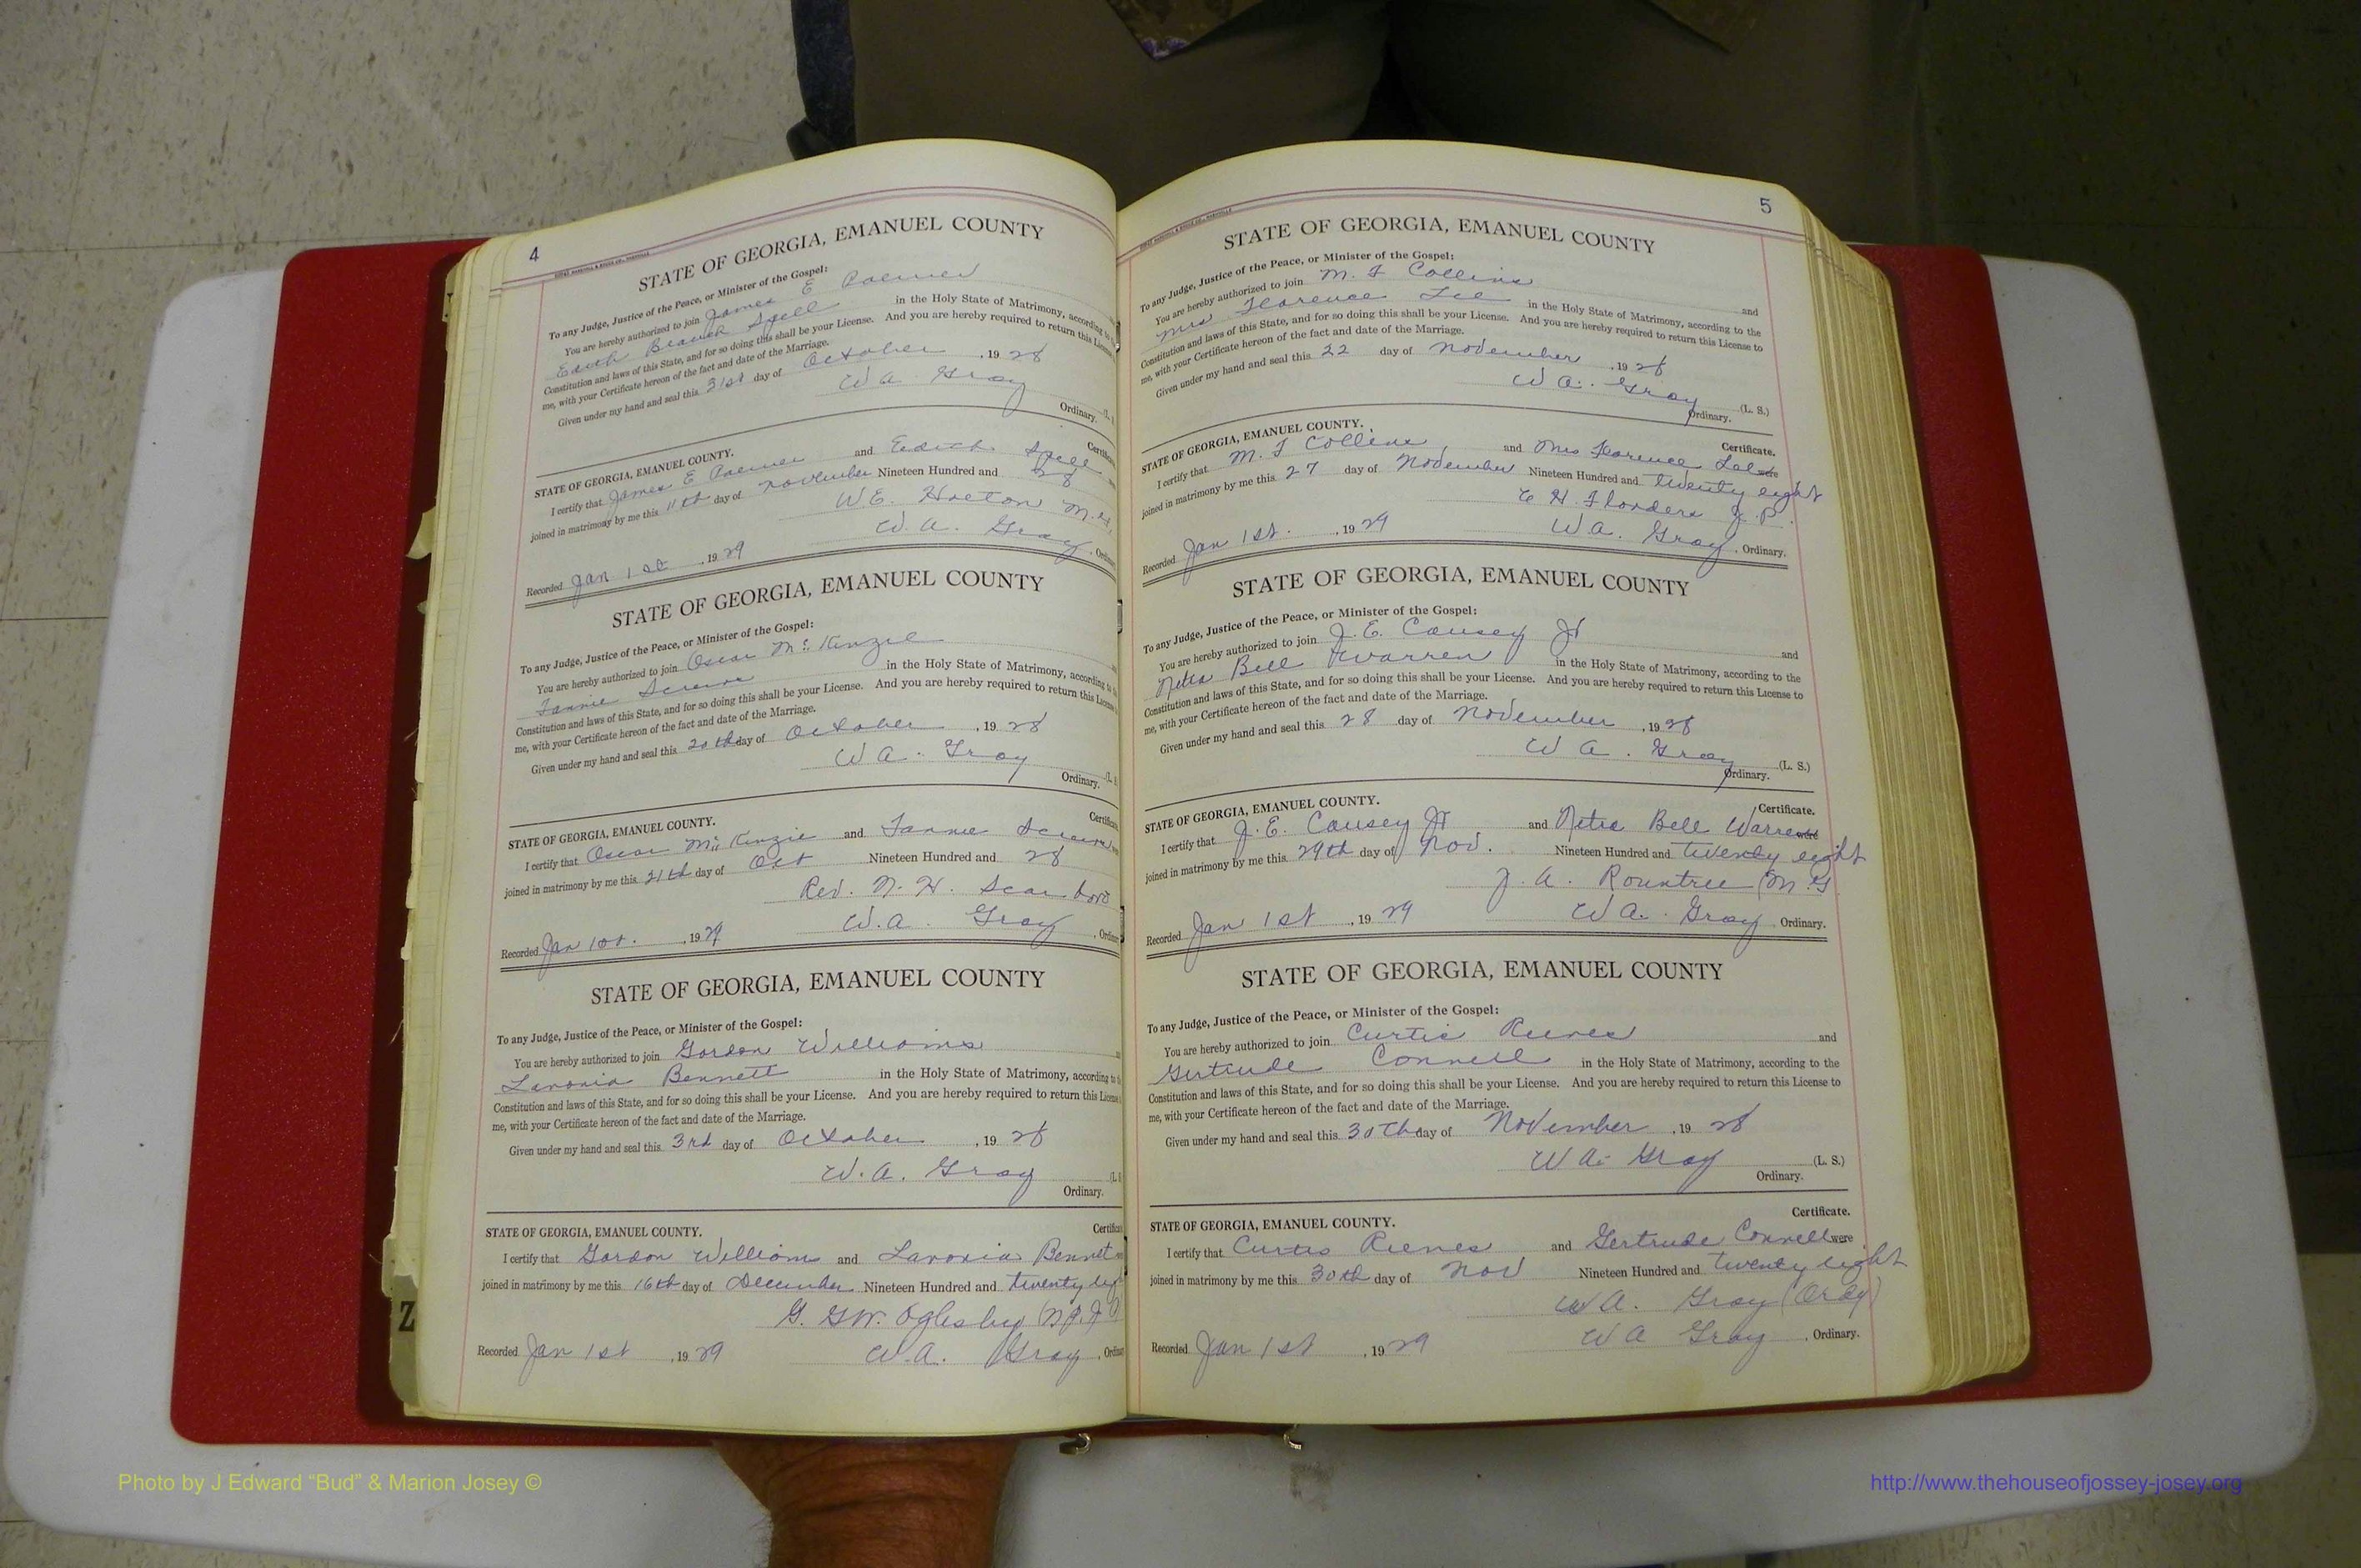 4
STATE OF GEORGIA, EMANUEL COUNTY
To any Judge, Justice of the Peace, or Minister of the Gospel:
You are hereby authorized to join James E
Spell in the Holy State of Matrimony, according to
Constitution and laws of this State, and for so doing this shall be your License. And you are hereby required to return this License
me, with your Certificate hereon of the fact and date of the Marriage.
Given under my hand and seal this 31st day of October, 1928
W A Gray (L.
Ordinary.
Certificate
STATE OF GEORGIA, EMANUEL COUNTY.
I certify that James E and Edith Spell
joined in matrimony by me this 11th day of November Nineteen Hundred and 28
W.E.
W. A. Gray, Ordinary
Recorded Jan 1st, 1929
STATE OF GEORGIA, EMANUEL COUNTY
To any Judge, Justice of the Peace, or Minister of the Gospel:
You are hereby authorized to join Oscar McKinzie
in the Holy State of Matrimony, according to
Constitution and laws of this State, and for so doing this shall be your License. And you are hereby required to return this License
me, with your Certificate hereon of the fact and date of the Marriage.
Given under my hand and seal this 20th day of October, 1928
W A. Gray (L.
Ordinary.
Certificate
STATE OF GEORGIA, EMANUEL COUNTY.
I certify that Oscar McKinzie and
joined in matrimony by me this 21th day of Oct Nineteen Hundred and 28
Rev. N. H. Scarboro
W.A. Gray, Ordinary
Recorded Jan 1st., 1929
STATE OF GEORGIA, EMANUEL COUNTY
To any Judge, Justice of the Peace, or Minister of the Gospel:
You are hereby authorized to join Gordon Williams
Lavonia Bennett in the Holy State of Matrimony, according to
Constitution and laws of this State, and for so doing this shall be your License. And you are hereby required to return this License
me, with your Certificate hereon of the fact and date of the Marriage.
Given under my hand and seal this 3rd day of October, 1928
W. A. Gray (L
Ordinary.
STATE OF GEORGIA, EMANUEL COUNTY. Certificate
I certify that Gordon Williams and Lavonia Bennet
joined in matrimony by me this 16th day of December Nineteen Hundred and twenty
G. GW. Oglesby
Recorded Jan 1st, 1929 W.A. Gray, Ordinary
5
STATE OF GEORGIA, EMANUEL COUNTY
To any Judge, Justice of the Peace, or Minister of the Gospel:
You are hereby authorized to join M. F Collins and
Mrs Florence Lee in the Holy State of Matrimony, according to the
Constitution and laws of this State, and for so doing this shall be your License. And you are hereby required to return this License to
me, with your Certificate hereon of the fact and date of the Marriage.
Given under my hand and seal this 22 day of November, 1928
W A. Gray (L. S.)
Ordinary.
STATE OF GEORGIA, EMANUEL COUNTY. Certificate.
I certify that M. F Collins and Mrs Florence Lee were
joined in matrimony by me this 27 day of November Nineteen Hundred and twenty eight
E H. Flanders J.P.
Recorded Jan 1st., 1929 W A. Gray, Ordinary.
STATE OF GEORGIA, EMANUEL COUNTY
To any Judge, Justice of the Peace, or Minister of the Gospel:
You are hereby authorized to join J. E. Causey Jr and
Netra Bell Warren in the Holy State of Matrimony, according to the
Constitution and laws of this State, and for so doing this shall be your License. And you are hereby required to return this License to
me, with your Certificate hereon of the fact and date of the Marriage.
Given under my hand and seal this 28 day of November, 1928
W A. Gray (L. S.)
Ordinary.
STATE OF GEORGIA, EMANUEL COUNTY. Certificate.
I certify that J. E. Causey Jr and Netra Bell Warren were
joined in matrimony by me this 29th day of Nov. Nineteen Hundred and twenty eight
J. A. Rountree (M.G
Recorded Jan 1st, 1929 W A. Gray, Ordinary.
STATE OF GEORGIA, EMANUEL COUNTY
To any Judge, Justice of the Peace, or Minister of the Gospel:
You are hereby authorized to join Curtis Reeves and
Gertrude Connell in the Holy State of Matrimony, according to the
Constitution and laws of this State, and for so doing this shall be your License. And you are hereby required to return this License to
me, with your Certificate hereon of the fact and date of the Marriage.
Given under my hand and seal this 30th day of November, 1928
W A. Gray (L. S.)
Ordinary.
Certificate.
STATE OF GEORGIA, EMANUEL COUNTY.
I certify that Curtis Reeves and Gertrude Connell were
joined in matrimony by me this 30th day of Nov Nineteen Hundred and twenty eight
W A. Gray (Ordy)
Recorded Jan 1st, 1929 W A Gray, Ordinary.
Z
Photo by J Edward “Bud” & Marion Josey ©
http://www.thehouseofjossey-josey.org